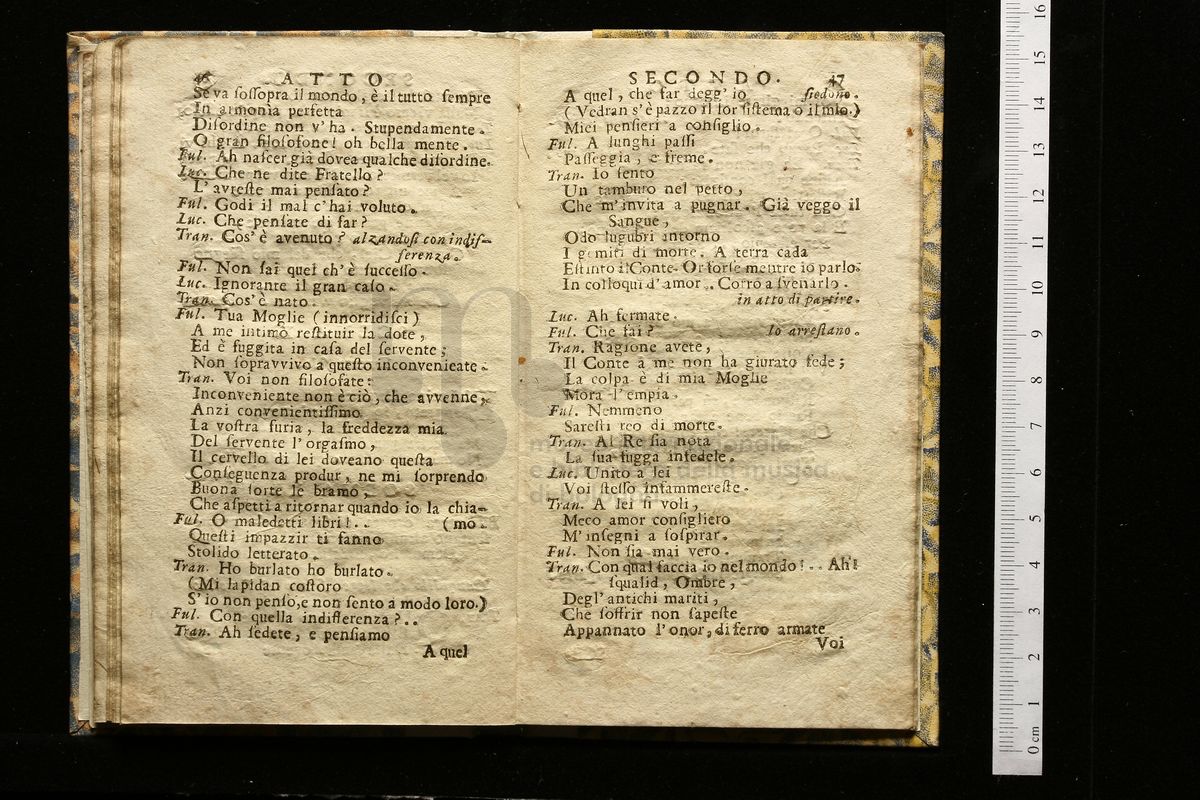 46 ATTO
Se va ſoſſopra il mondo, è il tutto ſempre
In armonia perfetta
Diſordine non v'ha. Stupendamente.
O gran filoſofone! oh bella mente.
Ful. Ah naſcer già dovea qualche diſordine.
Luc. Che ne dite Fratello?
L'avreſte mai penſato?
Ful. Godi il mal c'hai voluto.
Luc. Che penſate di far?
Tran. Cos'è avenuto? alzandoſi con indif-
ferenza.
Ful. Non ſai quel ch'è ſucceſſo.
Luc. Ignorante il gran caſo.
Tran. Cos'è nato.
Ful. Tua Moglie (innorridiſci)
A me intimò reſtituir la dote,
Ed è fuggita in caſa del ſervente;
Non ſopravvivo a queſto inconveniente.
Tran. Voi non filoſofate:
Inconveniente non è ciò, che avvenne,
Anzi convenientiſſimo
La voſtra furia, la freddezza mia
Del ſervente l'orgaſmo,
Il cervello di lei doveano queſta
Conſeguenza produr, ne mi ſorprendo
Buona ſorte le bramo,
Che aſpetti a ritornar quando io la chia-
Ful. O maledetti libri!.. (mo.
Queſti impazzir ti fanno
Stolido letterato.
Tran. Ho burlato ho burlato.
(Mi lapidan coſtoro
S'io non penſo, e non ſento a modo loro.)
Ful. Con quella indifferenza?..
Tran. Ah ſedete, e penſiamo
A quel
SECONDO. 47
A quel, che far degg'io ſiedono.
(Vedran s'è pazzo il lor ſiſtema o il mio.)
Miei penſieri a conſiglio.
Ful. A lunghi paſſi
Paſſeggia, e freme.
Tran. Io ſento
Un tamburo nel petto,
Che m'invita a pugnar. Già veggo il
Sangue,
Odo lugubri intorno
I gemiti di morte. A terra cada
Eſtinto il Conte. Or forſe mentre io parlo.
In colloqui d'amor.. Corro a ſvenarlo.
in atto di partire.
Luc. Ah fermate.
Ful. Che fai? lo arreſtano.
Tran. Ragione avete,
Il Conte a me non ha giurato fede;
La colpa è di mia Moglie
Mora l'empia.
Ful. Nemmeno
Sareſti reo di morte.
Tran. Al Re ſia nota
La ſua fugga infedele.
Luc. Unito a lei
Voi ſteſſo infammereſte.
Tran. A lei ſi voli,
Meco amor conſigliero
M'inſegni a ſoſpirar.
Ful. Non ſia mai vero.
Tran. Con qual faccia io nel mondo!.. Ah!
ſqualid, Ombre,
Degl'antichi mariti,
Che ſoffrir non ſapeſte
Appannato l'onor, di ferro armate
Voi
0 cm 1 2 3 4 5 6 7 8 9 10 11 12 13 14 15 16